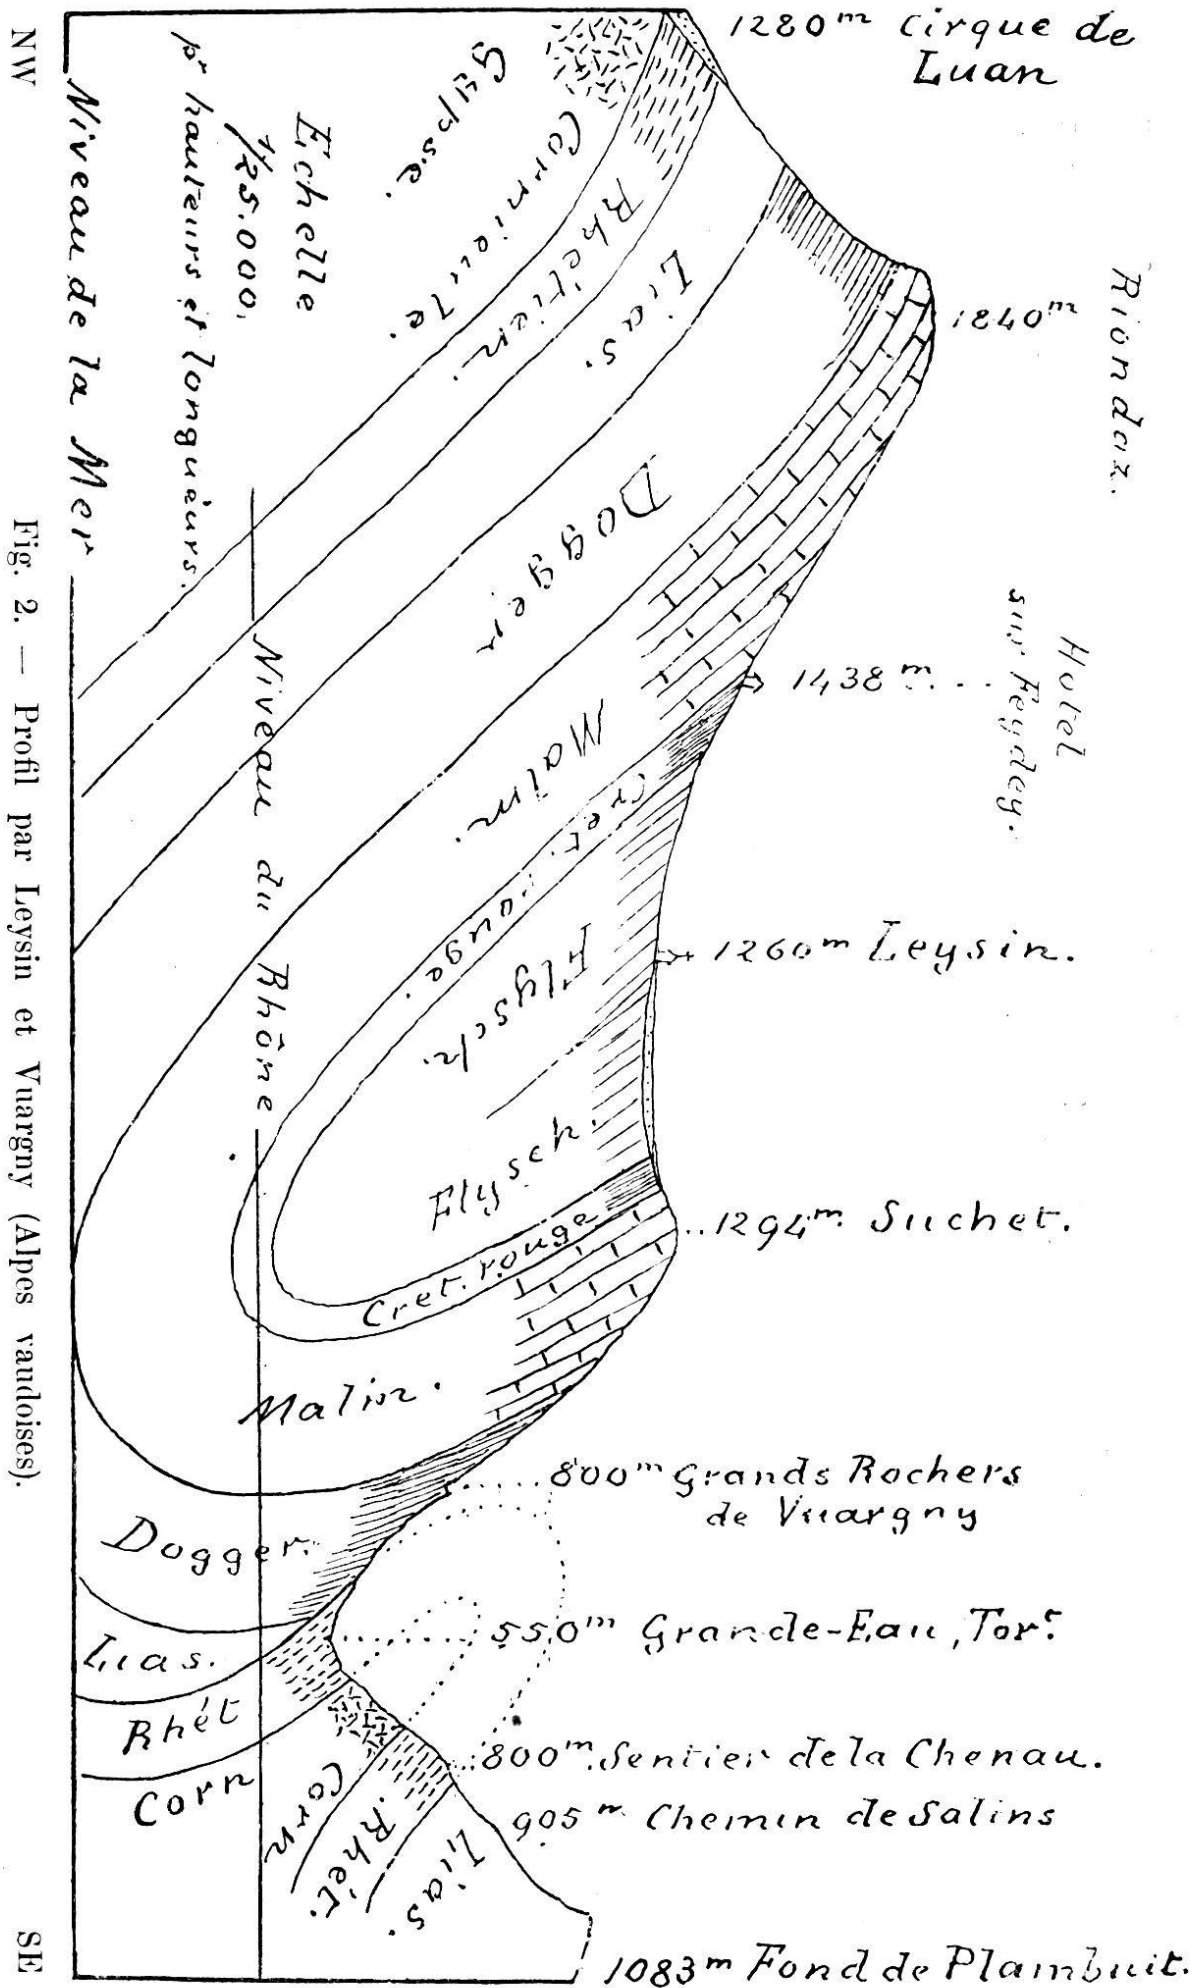 1280m Cirque de
Luan
Riondaz.
1840m
Hotel
sur Feydey.
1438m...
1260m Leysin.
..1294m Suchet.
....800m Grands Rochers
de Vuargny
550m Grande-Eau, Tort
800m. Sentier de la Chenau.
905m Chemin de Salins
1083m Fond de Plambuit.
Gypse.
Cornieule.
Rhétien.
Lias.
Dogger
Malm.
Cret. rouge.
Flysch.
Flysch.
Cret. rouge
Malm.
Dogger.
Lias.
Rhét
Corn
Corn
Rhét.
Lias.
Echelle
1/25.000.
pr hauteurs et longueurs.
Niveau du Rhône
Niveau de la Mer
NW
SE
Fig. 2. — Profil par Leysin et Vuargny (Alpes vaudoises).